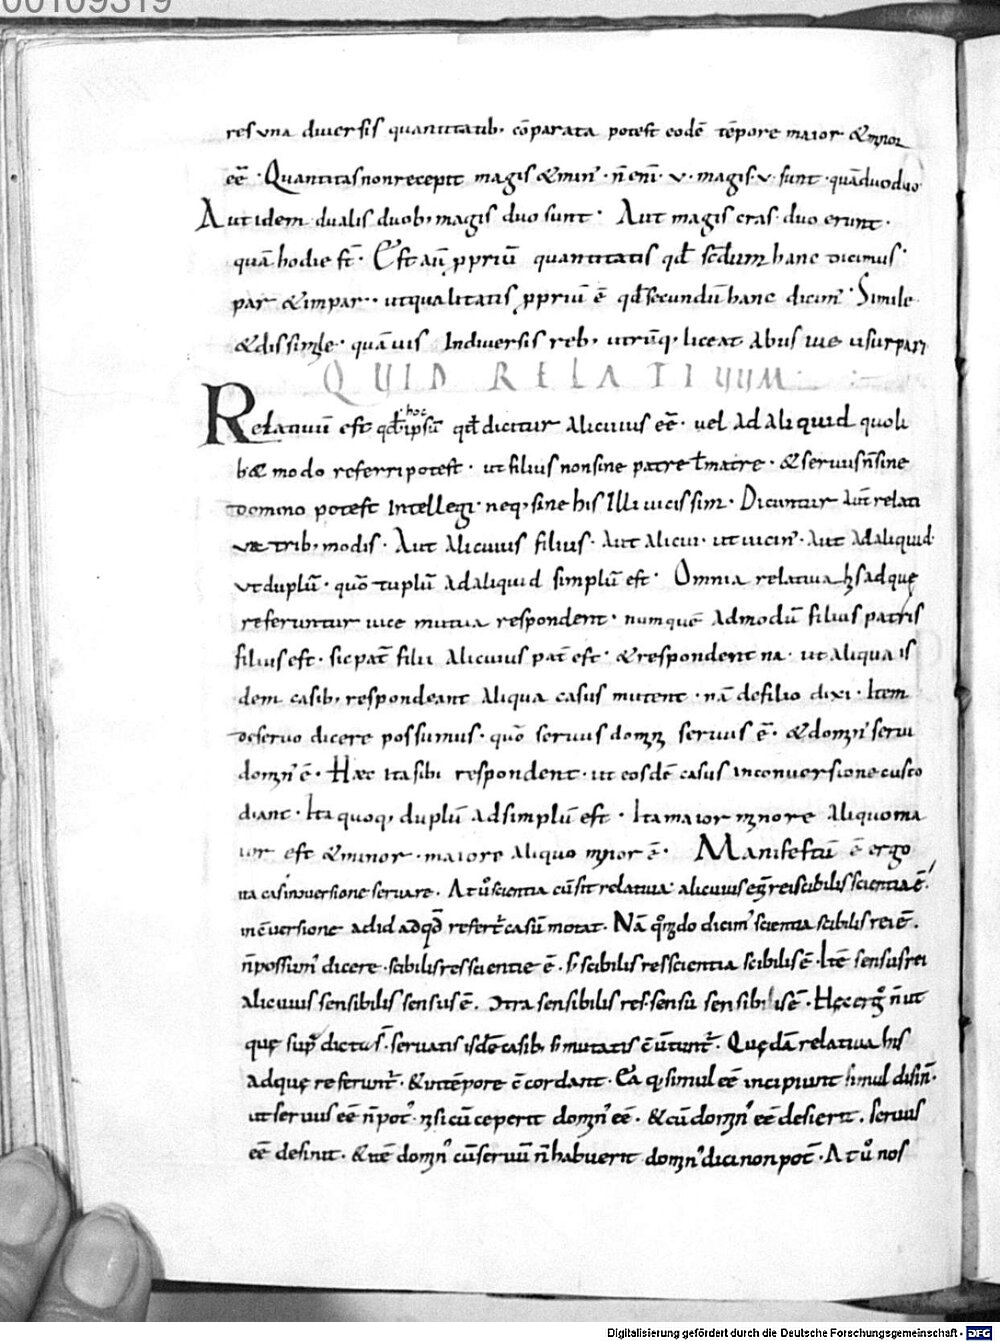 00109319
res una diuersis quantitatib; cōparata potest eodē tēpore maior & minor
eē · Quantitas non recepit magis & min᾿ · n̄ eni᾿ · v · magis · v · sunt · quā duo duo
Aut idem dualis duob; magis duo sunt · Aut magis cras · duo erunt ·
quā hodie st̄ · Est aū ꝓpriū quantitatis qđ scđum hanc dicimus ·
par & impar · ut qualitatis ꝓpriū ē qđ secundū hanc dicim᾿ · Simile
& dissimile · quā uis Indiuersis reb; utrūq; liceat Abusiue usurpari
QUID RELATIUUM
Relatiuū est qđ hoc ipsū qđ dicitur Alicuius eē · uel Ad Aliquid quoli
b& modo referri potest · ut filius non sine patre ł matre · & seruus n̄ sine
domino potest Intellegi · neq; sine his Illi uicissim · Dicuntur Aūt relati
uæ trib; modis · Aut Alicuius filius · Aut Alicui · ut uicin᾿ · Aut Ad aliquid ·
ut duplū · quō tuplū Ad aliquid simplū est · Omnia relatiua hs ad quę
referuntur uice mutua respondent · nam quē Admodū filius patris
filius est · sic pat̄ filii Alicuius pat̄ est · & respondent na · ut Aliqua is
dem casib; respondeant Aliqua casus mutent · nā de filio dixi · Item
de seruo dicere possumus · quō seruus domini seruus ē · & domin᾿ serui
domin᾿ ē · Hæc Ita sibi respondent · ut eosdē casus In conuersione custo
diant · Ita quoq; duplū Ad simplū est · Ita maior minore Aliquo ma
ior est & minor · maiore Aliquo minor ē · Manifestū ē ergo
ita cas᾿ in uersione seruare · At ů scientia cū sit relatiua · alicuius eni rei scibilis scientia ē
in c̄uersione ad id ad qđ refert̄ casū motat · Nā qm̊do dicim᾿ scientia scibilis rei ē ·
n̄ possum᾿ dicere · scibilis res scientie ē · s̄ scibilis res scientia scibilis ē · Itē sensus rei
alicuius sensibilis sensus ē · Ɔtra sensibilis res · sensu sensibilis ē · Hęc ergo n̄ ut
quę sup̄ dicta s̄ · seruatis isdē casib; s̄ mutatis c̄uertunt̄ · Quędā relatiua his
ad quę referunt̄ · & in tēpore c̄cordant · Ea q; simul eē incipiunt simul disin᾿ ·
ut seruus eē n̄ pot᾿ · nisi cū ceperit domin᾿ eē · & cū domin᾿ eē desierit · seruus
eē desinit · & itē domin᾿ cū seruū n̄ habuerit domin᾿ dici non pot̄ · At ů nos
Digitalisierung gefördert durch die Deutsche Forschungsgemeinschaft - DFG